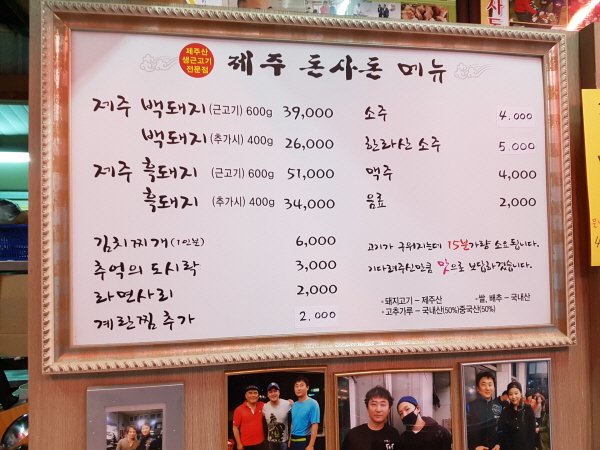 제주산
생근고기
전문점
제주 돈사돈 메뉴
제주 백돼지 (근고기) 600g 39,000
백돼지 (추가시) 400g 26,000
제주 흑돼지 (근고기) 600g 51,000
흑돼지 (추가시) 400g 34,000
김치찌개 (1인분) 6,000
추억의 도시락 3,000
라면사리 2,000
계란찜 추가 2.000
소주 4.000
한라산 소주 5.000
맥주 4,000
음료 2,000
고기가 구워지는데 15분가량 소요됩니다.
기다려주신만큼 맛으로 보답하겠습니다.
- 돼지고기 – 제주산 - 쌀, 배추 – 국내산
- 고추가루 – 국내산(50%)중국산(50%)